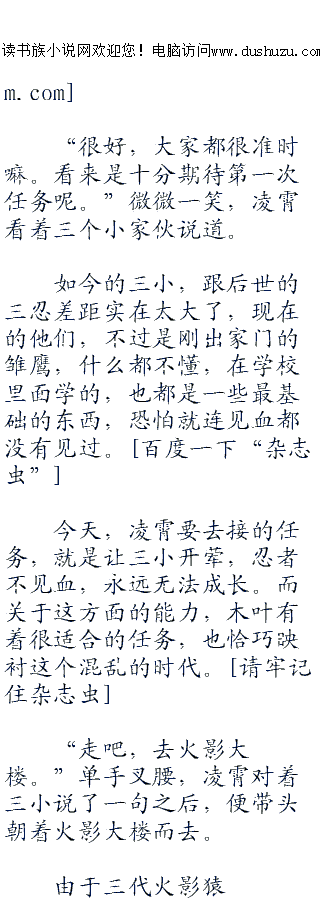 读书族小说网欢迎您！电脑访问www.dushuzu.com
m.com]
“很好，大家都很准时
嘛。看来是十分期待第一次
任务呢。”微微一笑，凌霄
看着三个小家伙说道。
如今的三小，跟后世的
三忍差距实在太大了，现在
的他们，不过是刚出家门的
雏鹰，什么都不懂，在学校
里面学的，也都是一些最基
础的东西，恐怕就连见血都
没有见过。[百度一下“杂志
虫”]
今天，凌霄要去接的任
务，就是让三小开荤，忍者
不见血，永远无法成长。而
关于这方面的能力，木叶有
着很适合的任务，也恰巧映
衬这个混乱的时代。[请牢记
住杂志虫]
“走吧，去火影大
楼。”单手叉腰，凌霄对着
三小说了一句之后，便带头
朝着火影大楼而去。
由于三代火影猿